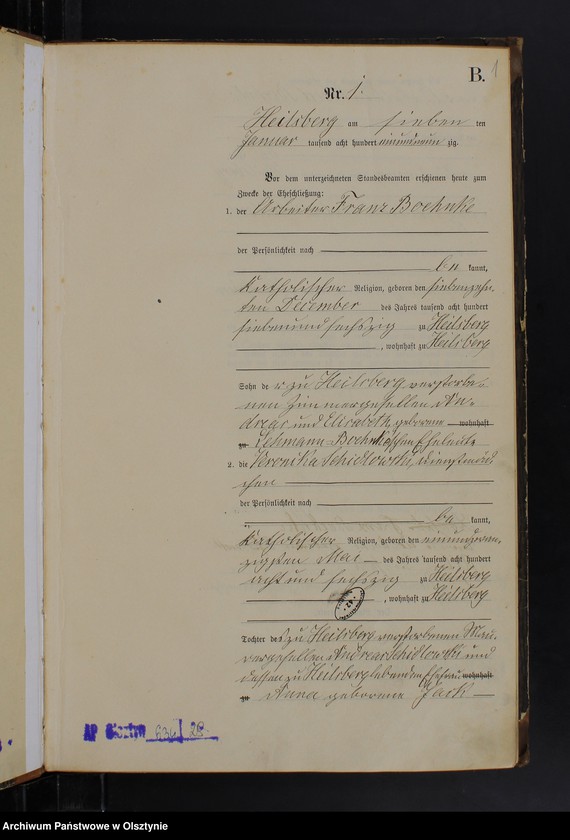 B. 1
Nr. 1.
Heilsberg am sieben ten
Januar tausend acht hundert einundneun zig.
Vor dem unterzeichneten Standesbeamten erschienen heute zum
Zwecke der Eheschließung:
1. der Arbeiter Franz Boehnke
der Persönlichkeit nach
be kannt,
Katholischer Religion, geboren den siebenzehn-
ten December des Jahres tausend acht hundert
siebenundsechszig zu Heilsberg
, wohnhaft zu Heilsberg
Sohn der zu Heilsberg verstorbe-
nen Zimmergesellen An-
dreas und Elisabeth geborene wohnhaft
zu Lehmann Boehnke'schen Eheleute
2. die Veronika Schidlowski, Dienstmäd-
chen
der Persönlichkeit nach
be kannt,
Katholischer Religion, geboren den einundzwan-
zigsten Mai des Jahres tausend acht hundert
acht und sechszig zu Heilsberg
, wohnhaft zu Heilsberg
Tochter des zu Heilsberg verstorbenen Mau-
rergesellen Andreas Schidlowski und
dessen zu Heilsberg lebenden Ehefrau wohnhaft
zu Anna geborene Jack
AP Olsztyn 636 28
Archiwum Państwowe w Olsztynie